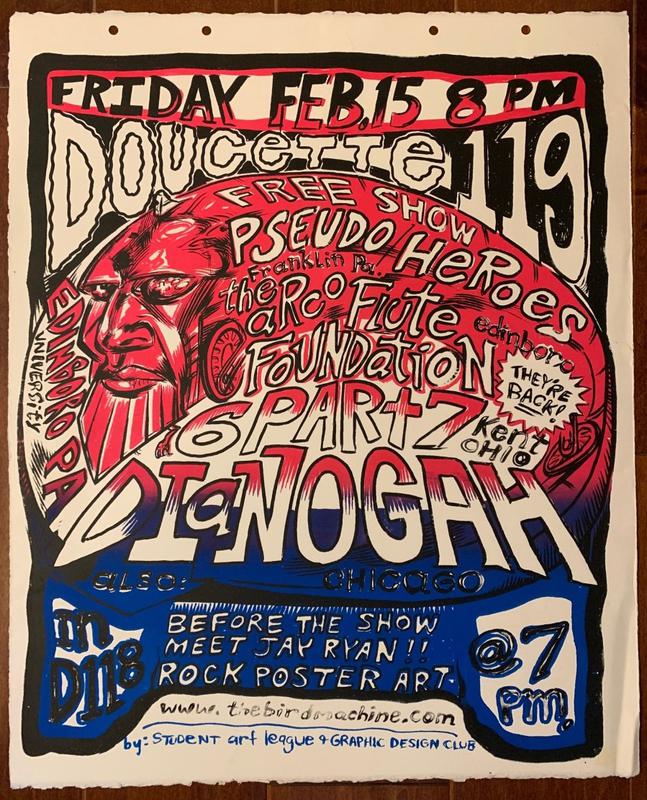 FRIDAY FEB.15 8 PM
DOUCETTE 119
FREE SHOW
PSEUDO HEROES
Franklin Pa.
the ARCO Flute
FOUNDATION
edinboro
THEY'RE
BACK!
6 PART 7
Kent
OHIO
DIANOGAH
EDINBORO PA
UNIVERSITY
ALSO:
CHICAGO
in
D118
BEFORE THE SHOW
MEET JAY RYAN!!
ROCK POSTER ART.
@7
pm.
www.thebirdmachine.com
by: STUDENT art league & GRAPHIC DESIGN CLUB